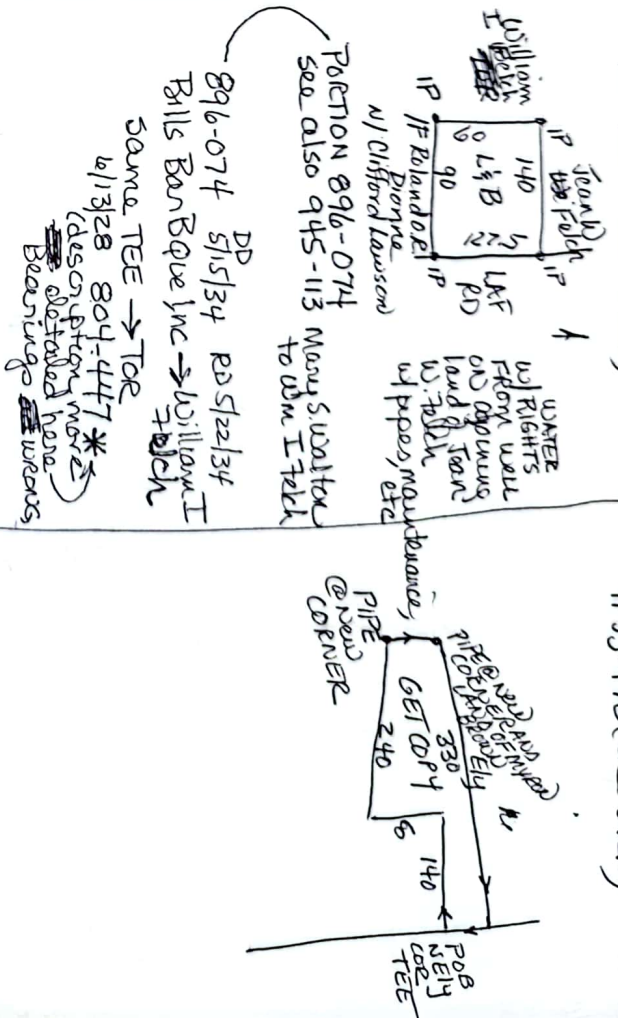 William
I Felch
IP
Jean W
Felch
IP
140
60
L&B
90
IP
IP
LAF
RD
N/F Roland R
Dionne
N/ Clifford Lawson
WATER
W/ RIGHTS
FROM well
on adjoining
land of Jean
W. Felch
w/ pipes, maintenance,
etc
PORTION 896-074
see also 945-113
Mary S. Walton
to Wm I Felch
896-074 DD 5/15/34 RD 5/22/34
Bills BarBQue, Inc → William I
Felch
Same TEE → TOR
6/13/28 804-447 *
(description more
detailed here)
Bearings wrong
PIPE @ NEW
CORNER AND
CORNER OF MYRON
LAND
PIPE
@ NEW
CORNER
330
GET COPY
240
140
POB
NEly
COR
TEE